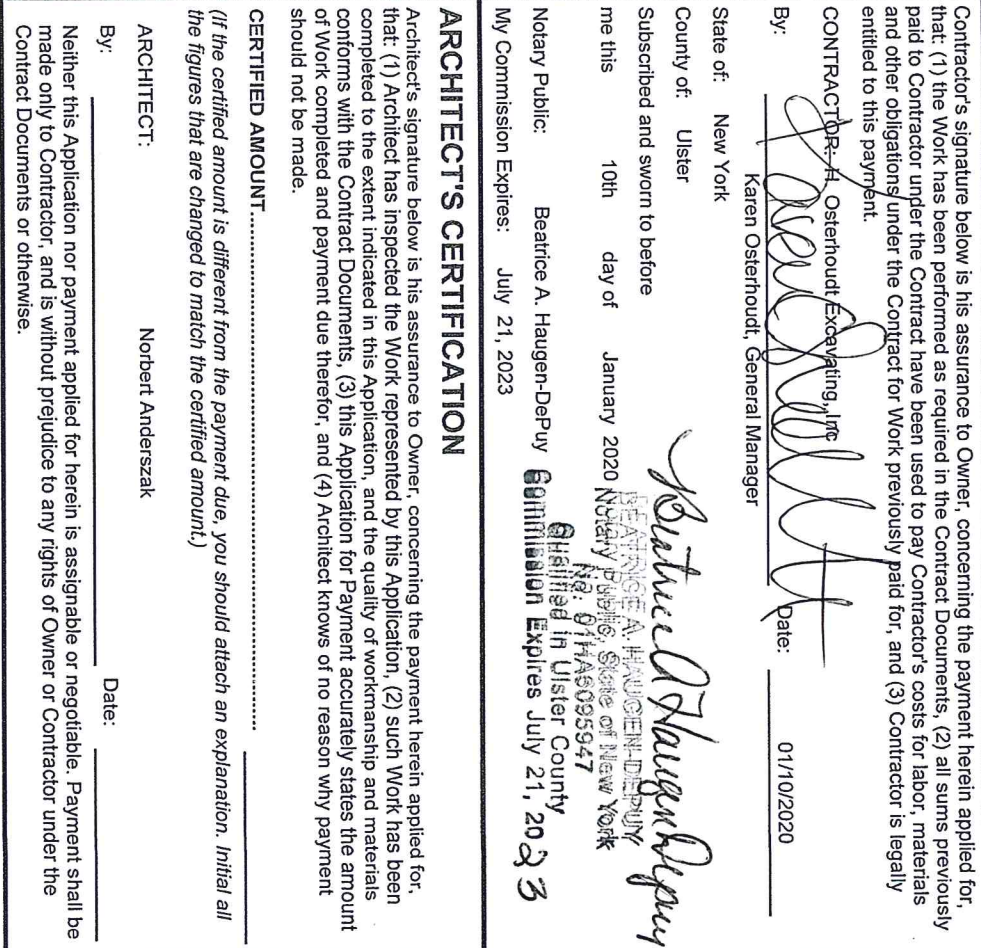 Contractor's signature below is his assurance to Owner, concerning the payment herein applied for,
that: (1) the Work has been performed as required in the Contract Documents, (2) all sums previously
paid to Contractor under the Contract have been used to pay Contractor's costs for labor, materials
and other obligations under the Contract for Work previously paid for, and (3) Contractor is legally
entitled to this payment.
CONTRACTOR: H. Osterhoudt Excavating, Inc
By: Date: 01/10/2020
Karen Osterhoudt, General Manager
State of: New York
County of: Ulster
Subscribed and sworn to before
me this 10th day of January 2020
Beatrice A Haugen Depuy
BEATRICE A. HAUGEN-DEPUY
Notary Public, State of New York
No: 01HA5095947
Qualified in Ulster County
Commission Expires July 21, 2023
Notary Public: Beatrice A. Haugen-DePuy
My Commission Expires: July 21, 2023
ARCHITECT'S CERTIFICATION
Architect's signature below is his assurance to Owner, concerning the payment herein applied for,
that: (1) Architect has inspected the Work represented by this Application, (2) such Work has been
completed to the extent indicated in this Application, and the quality of workmanship and materials
conforms with the Contract Documents, (3) this Application for Payment accurately states the amount
of Work completed and payment due therefor, and (4) Architect knows of no reason why payment
should not be made.
CERTIFIED AMOUNT..............................................................
(If the certified amount is different from the payment due, you should attach an explanation. Initial all
the figures that are changed to match the certified amount.)
ARCHITECT: Norbert Anderszak
By: Date:
Neither this Application nor payment applied for herein is assignable or negotiable. Payment shall be
made only to Contractor, and is without prejudice to any rights of Owner or Contractor under the
Contract Documents or otherwise.